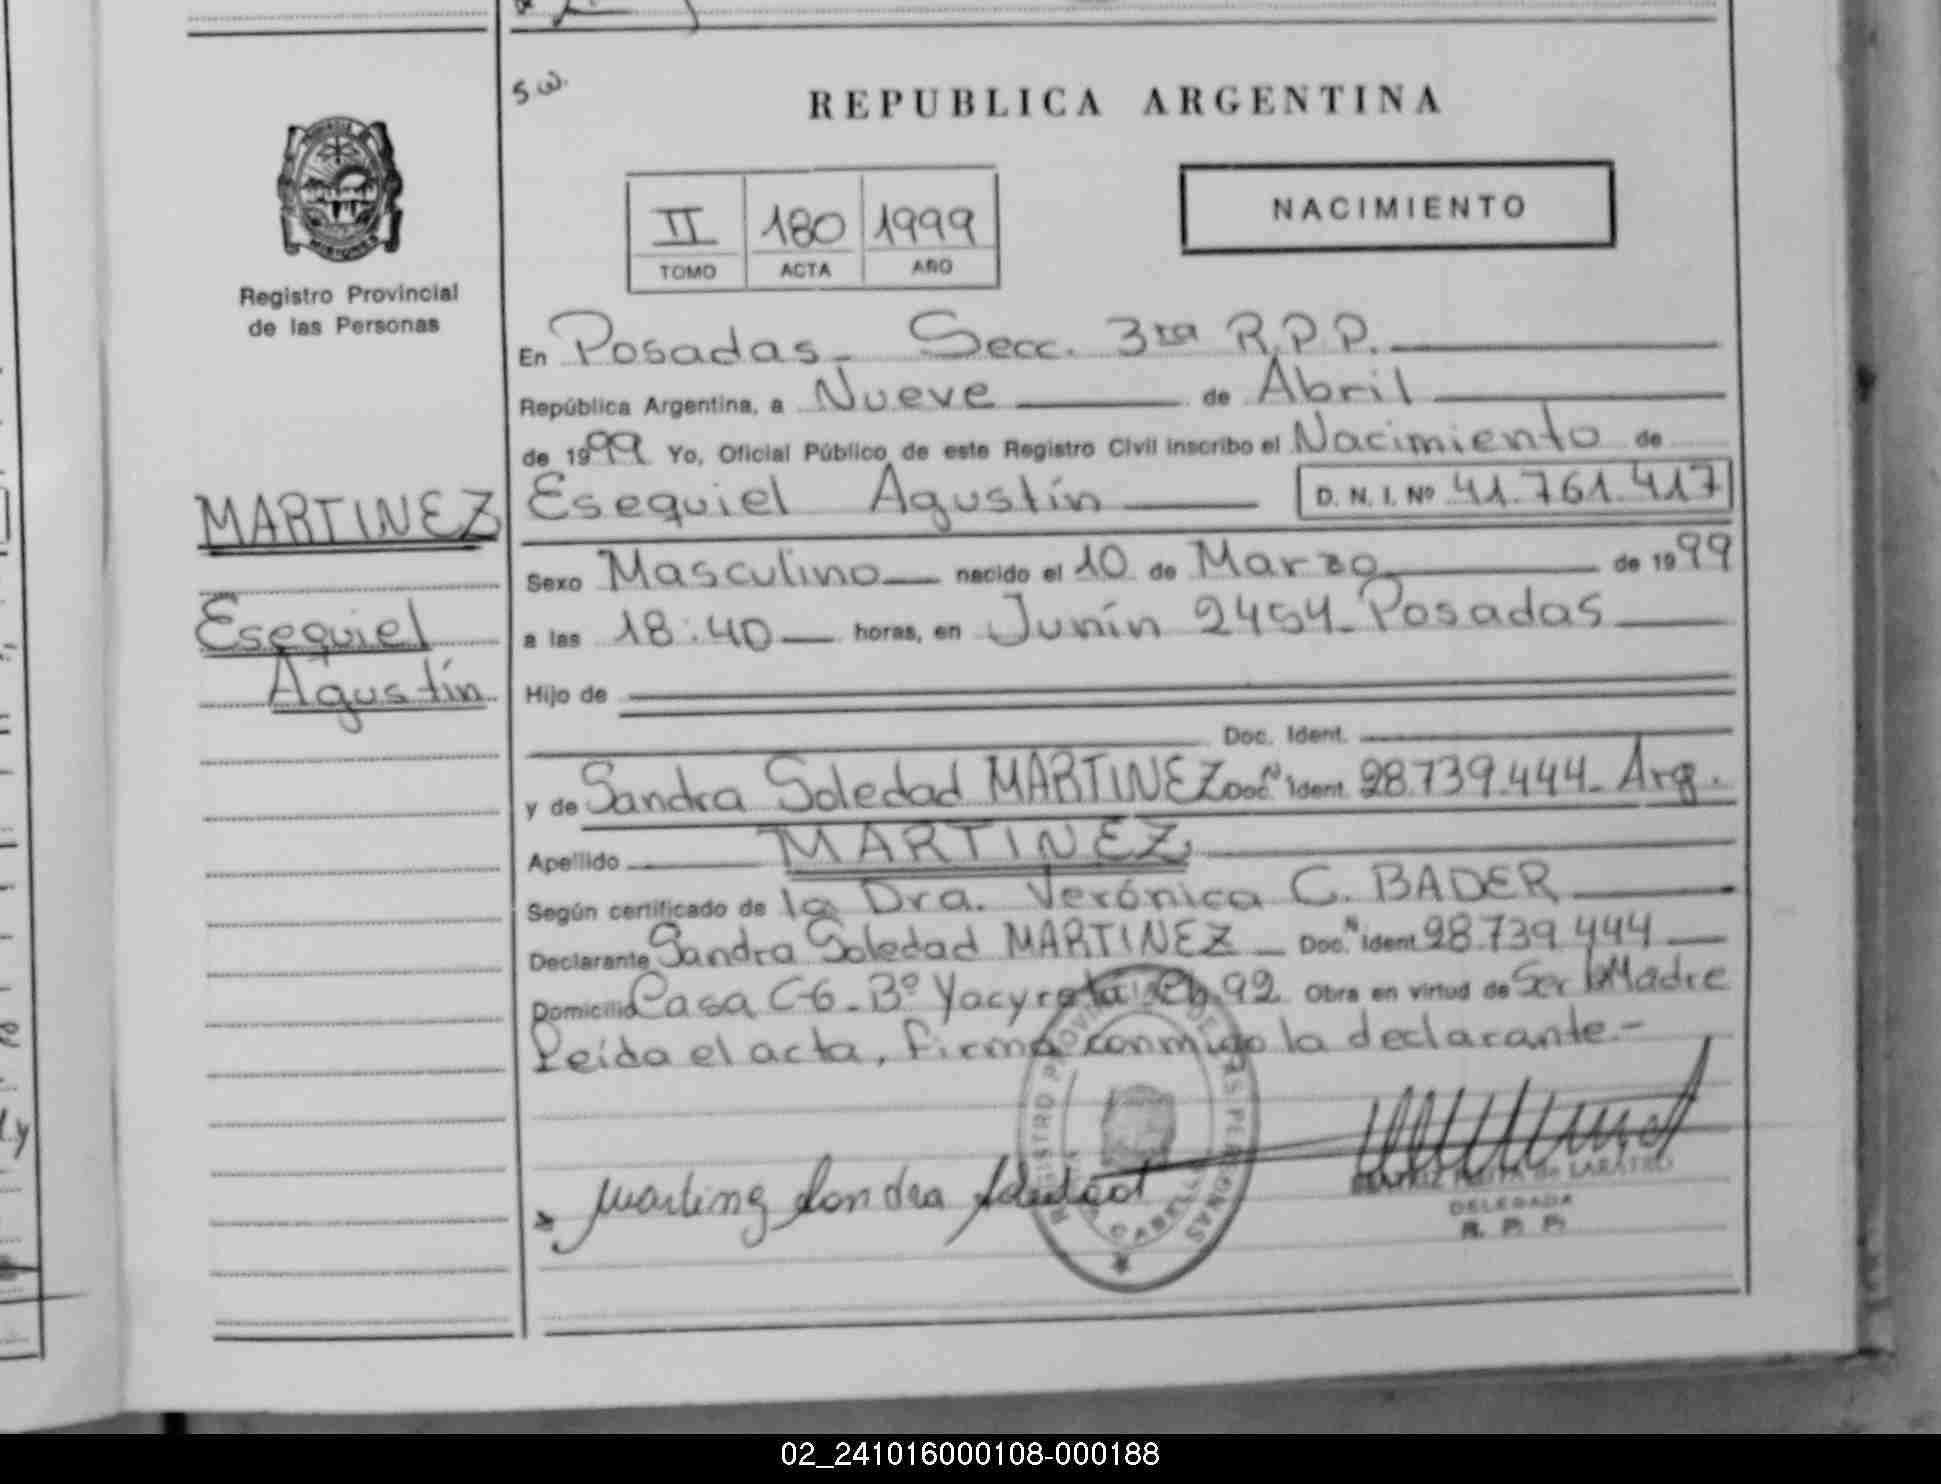 S.W.
REPUBLICA ARGENTINA
II 180 1999
TOMO ACTA AÑO
NACIMIENTO
Registro Provincial
de las Personas
MARTINEZ
Esequiel
Agustín
En Posadas - Secc. 3ra R.P.P.
República Argentina, a Nueve de Abril
de 1999 Yo, Oficial Público de este Registro Civil inscribo el Nacimiento de
Esequiel Agustín D. N. I. Nº 41.761.417
Sexo Masculino nacido el 10 de Marzo de 1999
a las 18:40 horas, en Junín 2454 - Posadas
Hijo de
Doc. Ident.
y de Sandra Soledad MARTINEZ Doc. N Ident. 28.739.444 - Arg.
Apellido MARTINEZ
Según certificado de la Dra. Verónica C. BADER
Declarante Sandra Soledad MARTINEZ - Doc. N Ident 28.739.444
Domicilio Casa C-6 - Bº Yacyreta Ch. 92 Obra en virtud de Ser la Madre
Leída el acta, firma conmigo la declarante.-
REGISTRO PROVINCIAL DE LAS PERSONAS
Martinez Sandra Soledad
DELEGADA
R. P. P.
02_241016000108-000188